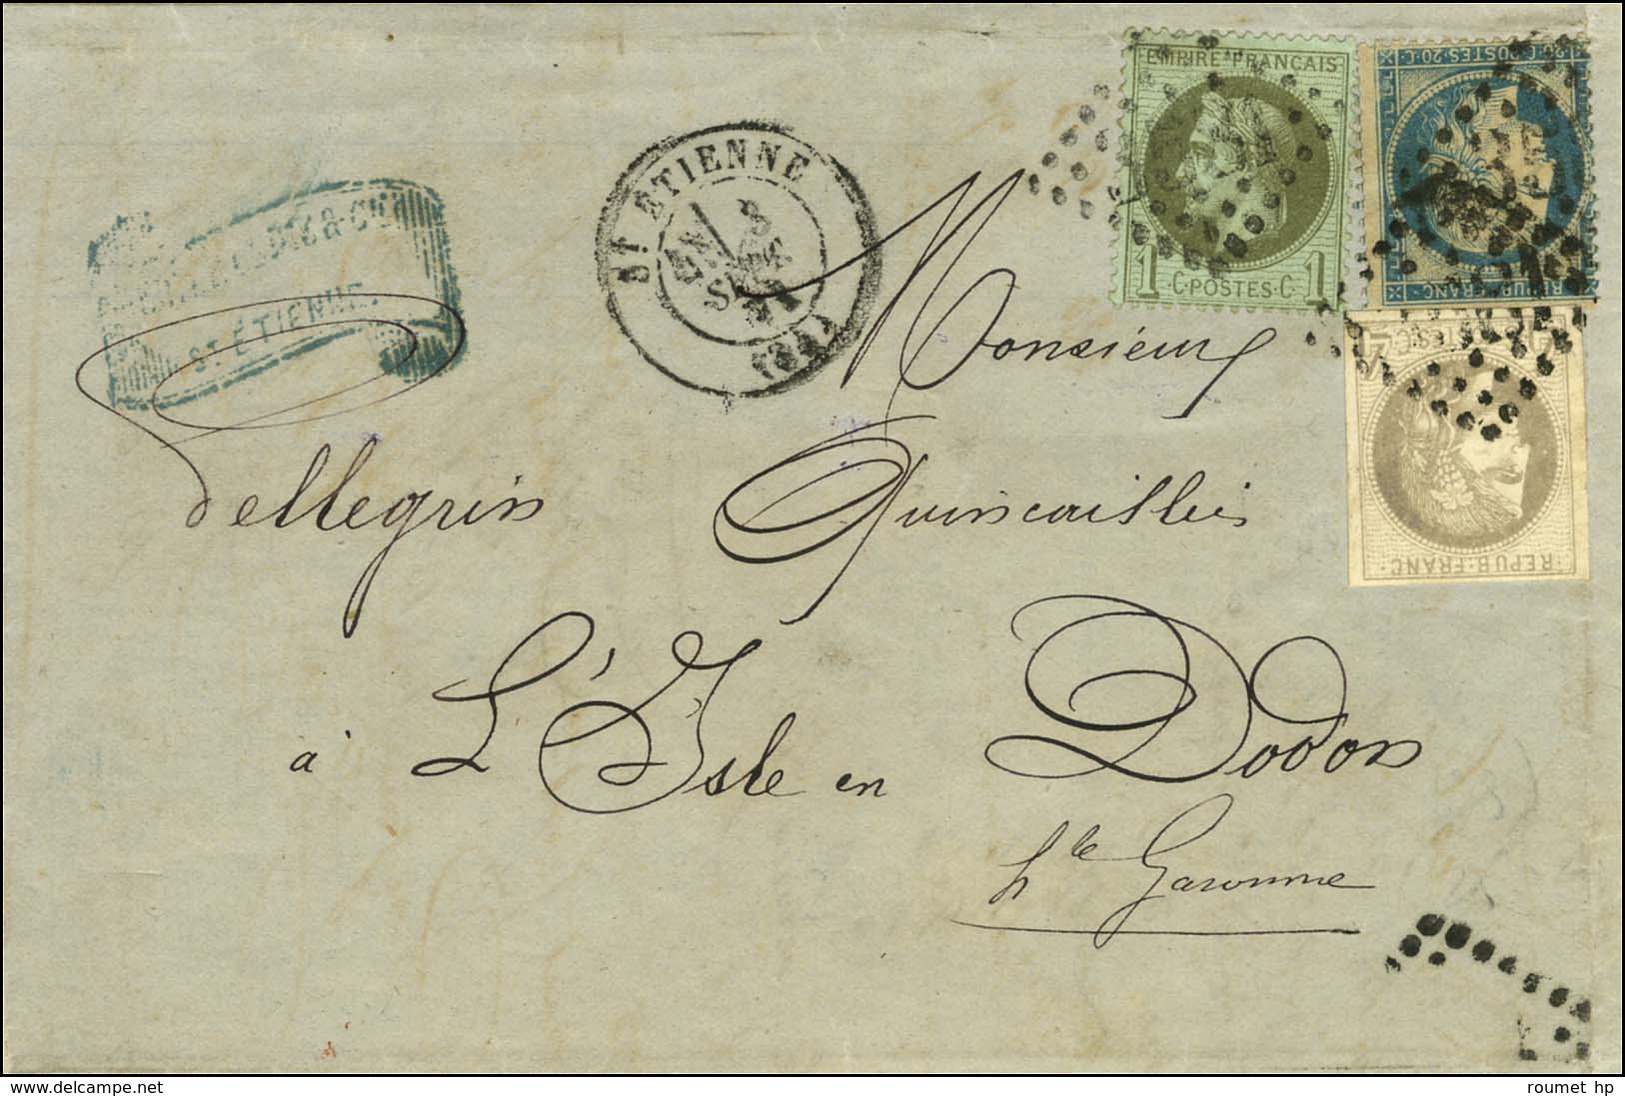 EMPIRE FRANÇAIS
1 C·POSTES·C 1
20 C·POSTES·20 C
REPUB·FRANC
REPUB·FRANC·
ST ETIENNE
3
SEPT
71
ST ETIENNE.
Monsieur
Dellegrin Quincaillier
à L'Isle en Dodon
hte Garonne
delcampe.net
roumet hp